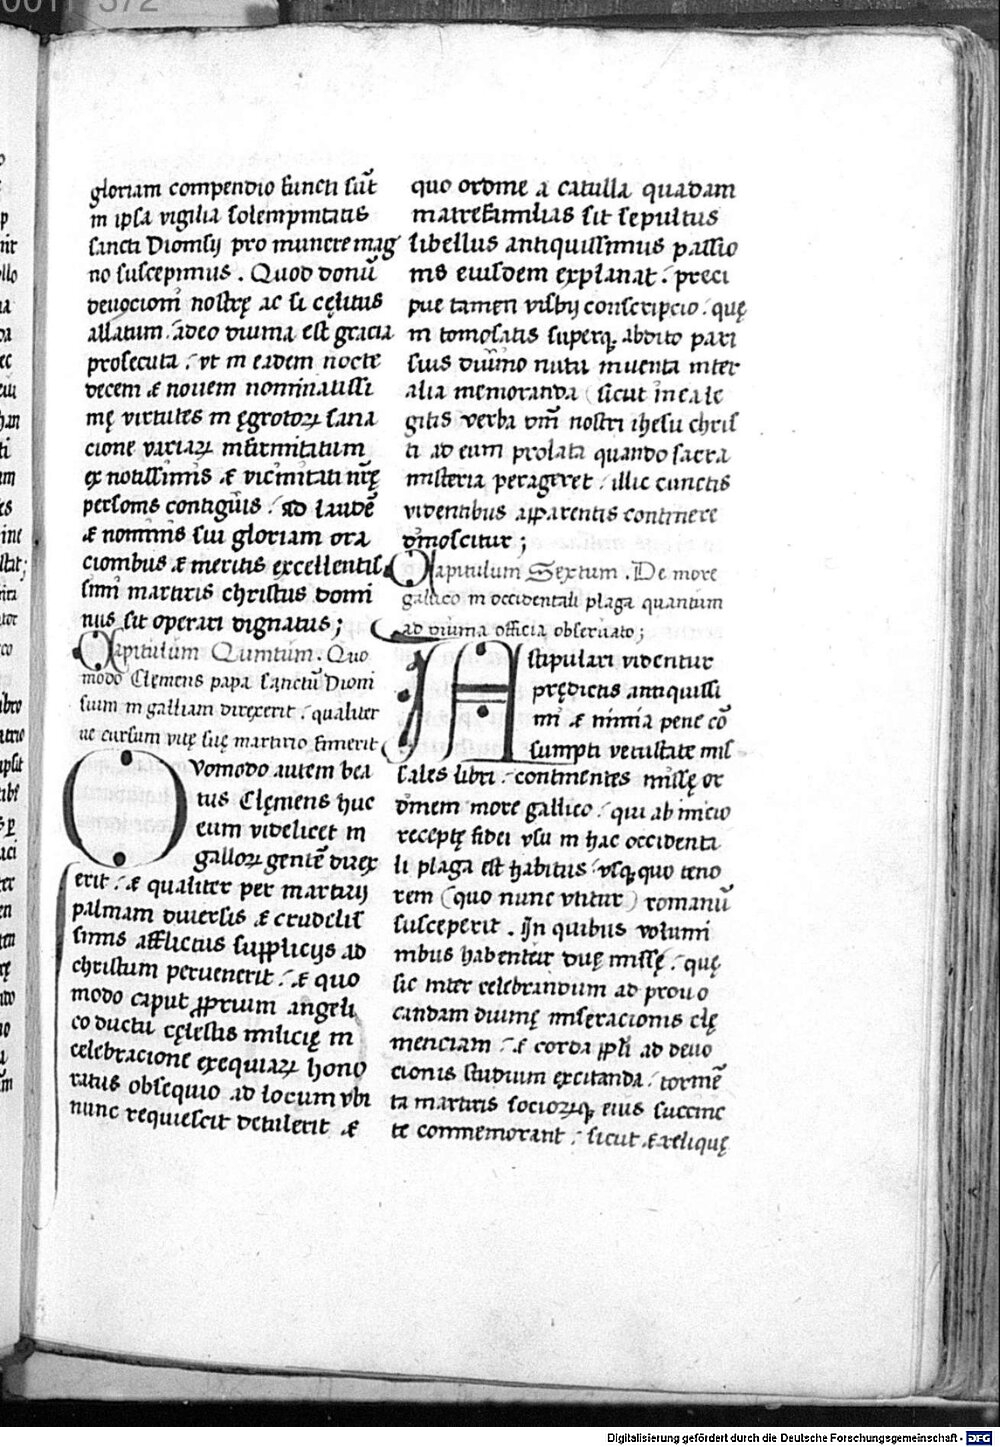 gloriam compendio functi sūt
in ipsa vigilia solempnitatis
sancti Dionisij pro munere mag
no suscepimus . Quod donū
deuocioni nostrę ac si cęlitus
allatum . adeo diuina est gracia
prosecuta . vt in eadem nocte
decem & nouem nominatissi
mę virtutes in ęgrotoꝝ sana
cione variaꝝ infirmitatum
ex notissimis & vicinitati nr̄ę
personis contiguis . ad laudē
& nominis sui gloriam ora
cionibus & meritis excellentis
simi martiris christus domi
nus sit operari dignatus ;
Capitulum Quintum . Quo
modo Clemens papa sanctū Dioni
sium in galliam direxerit . qualiter
ue cursum vitę suę martirio finierit
Qvomodo autem bea
tus Clęmens huc
eum videlicet in
galloꝝ gentē direx
erit . & qualiter per martirij
palmam diuersis & crudelis
simis afflictus supplicijs ad
christum peruenerit . & quo
modo caput ꝓprium angeli
co ductu cęlestis milicię in
celebracione exequiaꝝ hono
ratus obsequio ad locum vbi
nunc requiescit detulerit &
quo ordine a catulla quadam
matrefamilias sit sepultus
libellus antiquissimus passio
nis eiusdem explanat . preci
pue tamen visbij conscripcio . quę
in tomo satis superq; abdito pari
sius diuino nutu inuenta inter
alia memoranda ( sicut in ea le
gitis verba dn̄i nostri ihesu chris
ti ad eum prolata quando sacra
misteria perageret . illic cunctis
videntibus apparentis continere
dinoscitur ;
Capitulum Sextum . De more
gallico in occidentali plaga quantum
ad diuina officia obseruato ;
Astipulari videntur
prędictis antiquissi
mi & nimia pene cō
sumpti vetustate mis
sales libri . continentes missę or
dinem more gallico . qui ab inicio
receptę fidei vsu in hac occidenta
li plaga est habitus . vsq; quo teno
rem ( quo nunc vtitur ) romanū
susceperit . In quibus volumi
nibus habentur duę missę . quę
sic inter celebrandum ad prouo
candam diuinę miseracionis clę
menciam . & corda pp̄li ad deuo
cionis studium excitanda . tormē
ta martiris socioꝝq; eius succinc
te commemorant . sicut & reliquę
Digitalisierung gefördert durch die Deutsche Forschungsgemeinschaft - DFG